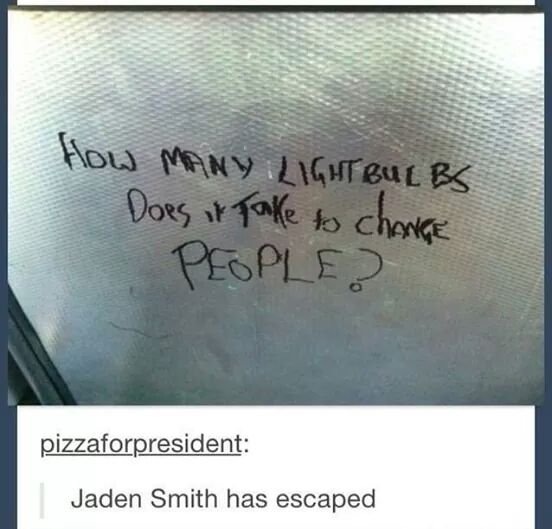 HOW MANY LIGHTBULBS
Does it Take to chANGE
PEOPLE?
pizzaforpresident:
Jaden Smith has escaped